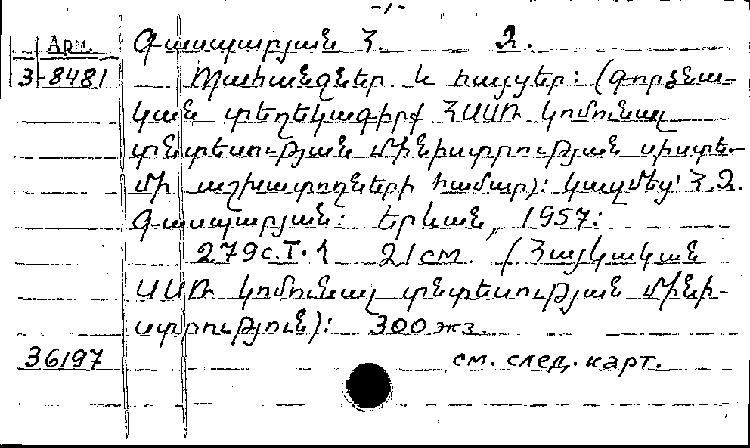 -1-
Арм. Գասպարյան Հ. Զ.
3-8481 Պահանջներ և հայցեր: (գործնա-
կան տեղեկագիրք ՀՍՍՌ կոմունալ
տնտեսության մինիստրության սիստե-
մի աշխատողների համար): Կազմեց՝ Հ.Զ.
Գասպարյան: Երևան, 1957:
279 с.Т. 21 см. (Հայկական
ՍՍՌ կոմունալ տնտեսության մինի-
ստրություն): 300 экз.
36197 см. след. карт.